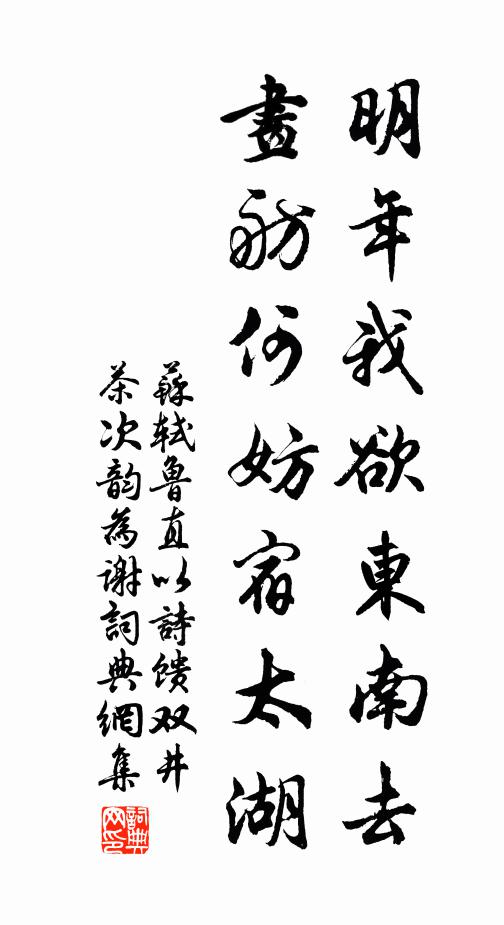 明年我欲東南去
畫舫何妨宿太湖
蘇軾魯直以詩馈双井
茶次韵為謝詞典網集
詞典
网印